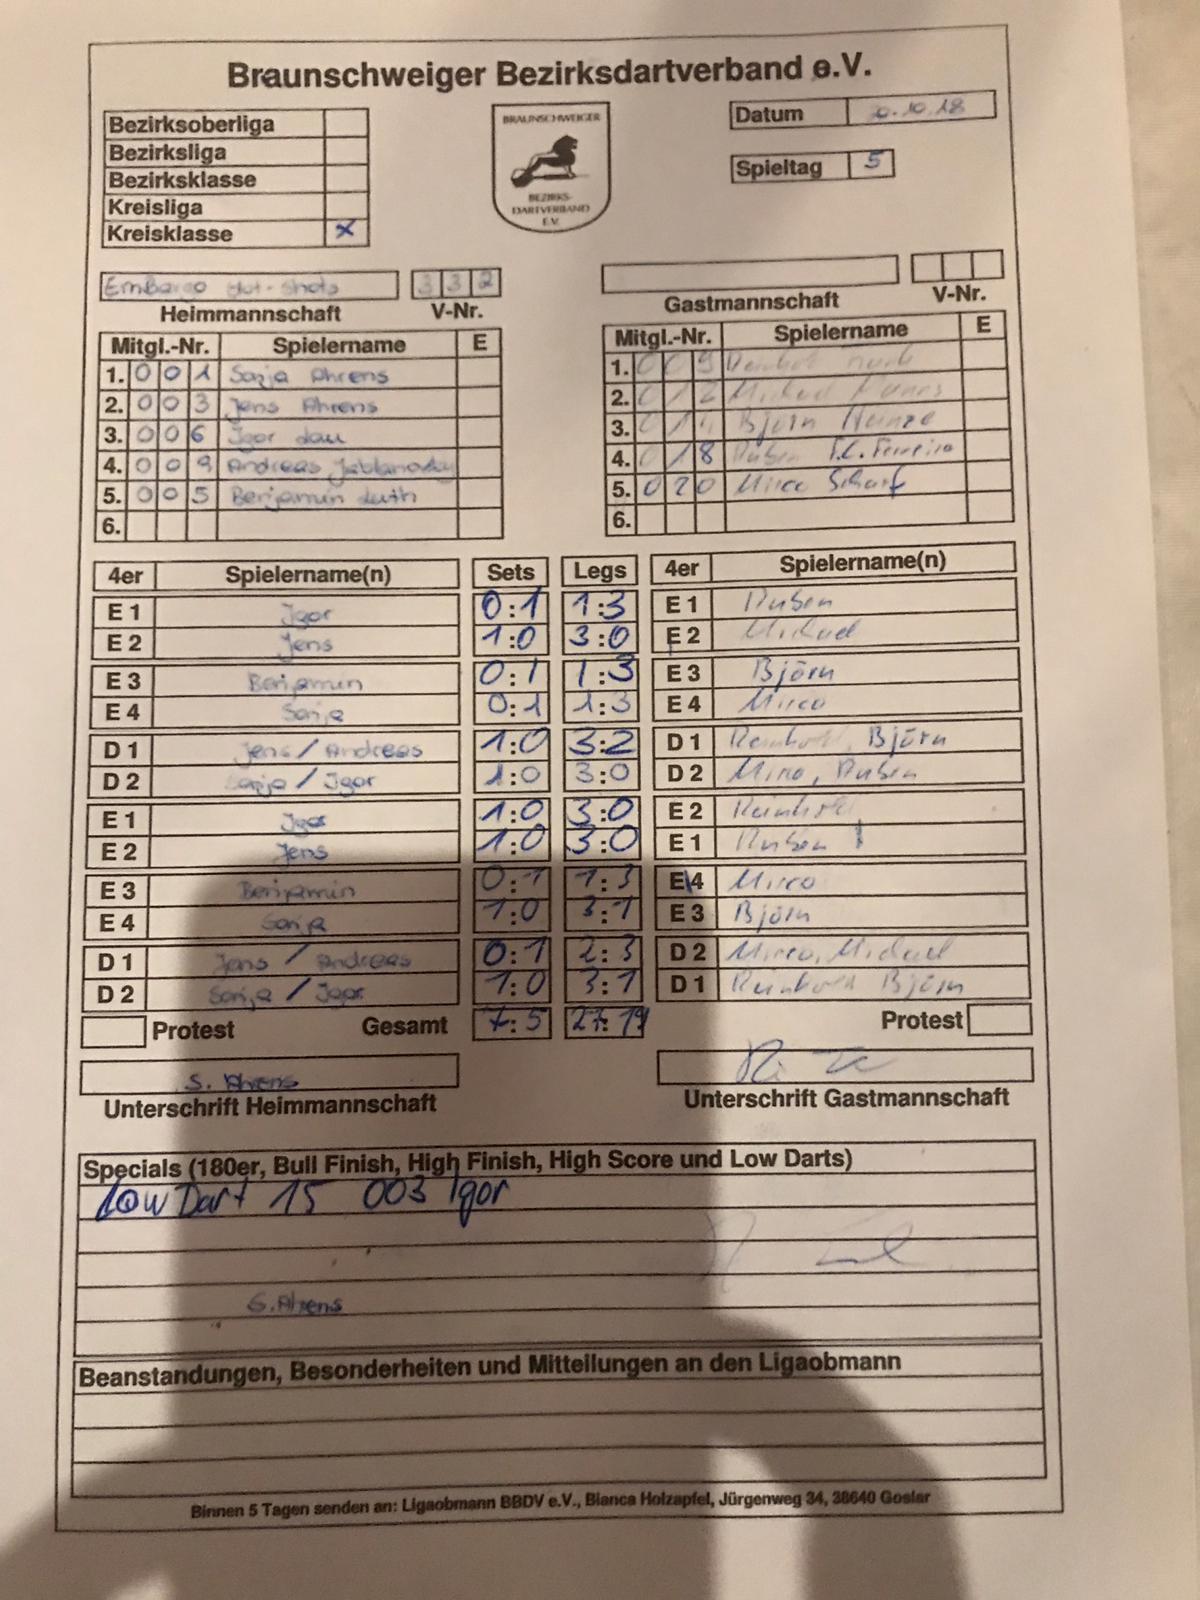 Braunschweiger Bezirksdartverband e.V.
Bezirksoberliga
Bezirksliga
Bezirksklasse
Kreisliga
Kreisklasse x
BRAUNSCHWEIGER
BEZIRKS-
DARTVERBAND
E.V.
Datum 10.18
Spieltag 5
EmBargo Hot-Shots 332
Heimmannschaft V-Nr.
Gastmannschaft V-Nr.
Mitgl.-Nr. Spielername E
1. 001 Sonja Ahrens
2. 003 Jens Ahrens
3. 006 Igor
4. 009 Andreas Jablanovsky
5. 005 Benjamin Luth
6.
Mitgl.-Nr. Spielername E
1. 009
2. 012 Michael
3. Björn Heinze
4. 018 Ruben F.C. Ferreira
5. 020 Mirco Scharf
6.
4er Spielername(n) Sets Legs 4er Spielername(n)
E 1 Igor 0:1 1:3 E 1 Ruben
E 2 Jens 1:0 3:0 E 2 Michael
E 3 Benjamin 0:1 1:3 E 3 Björn
E 4 Sonja 0:1 1:3 E 4 Mirco
D 1 Jens / Andreas 1:0 3:2 D 1 Reinhold, Björn
D 2 Sonja / Igor 1:0 3:0 D 2 Mirco, Ruben
E 1 Igor 1:0 3:0 E 2 Reinhold
E 2 Jens 1:0 3:0 E 1 Ruben
E 3 Benjamin 0:1 1:3 E 4 Mirco
E 4 Sonja 1:0 3:1 E 3 Björn
D 1 Jens / Andreas 0:1 2:3 D 2 Mirco, Michael
D 2 Sonja / Igor 1:0 3:1 D 1 Reinhold Björn
Protest Gesamt 7:5 27:19 Protest
S. Ahrens
Unterschrift Heimmannschaft Unterschrift Gastmannschaft
Specials (180er, Bull Finish, High Finish, High Score und Low Darts)
Low Dart 15 003 Igor
S. Ahrens
Beanstandungen, Besonderheiten und Mitteilungen an den Ligaobmann
Binnen 5 Tagen senden an: Ligaobmann BBDV e.V., Bianca Holzapfel, Jürgenweg 34, 38640 Goslar